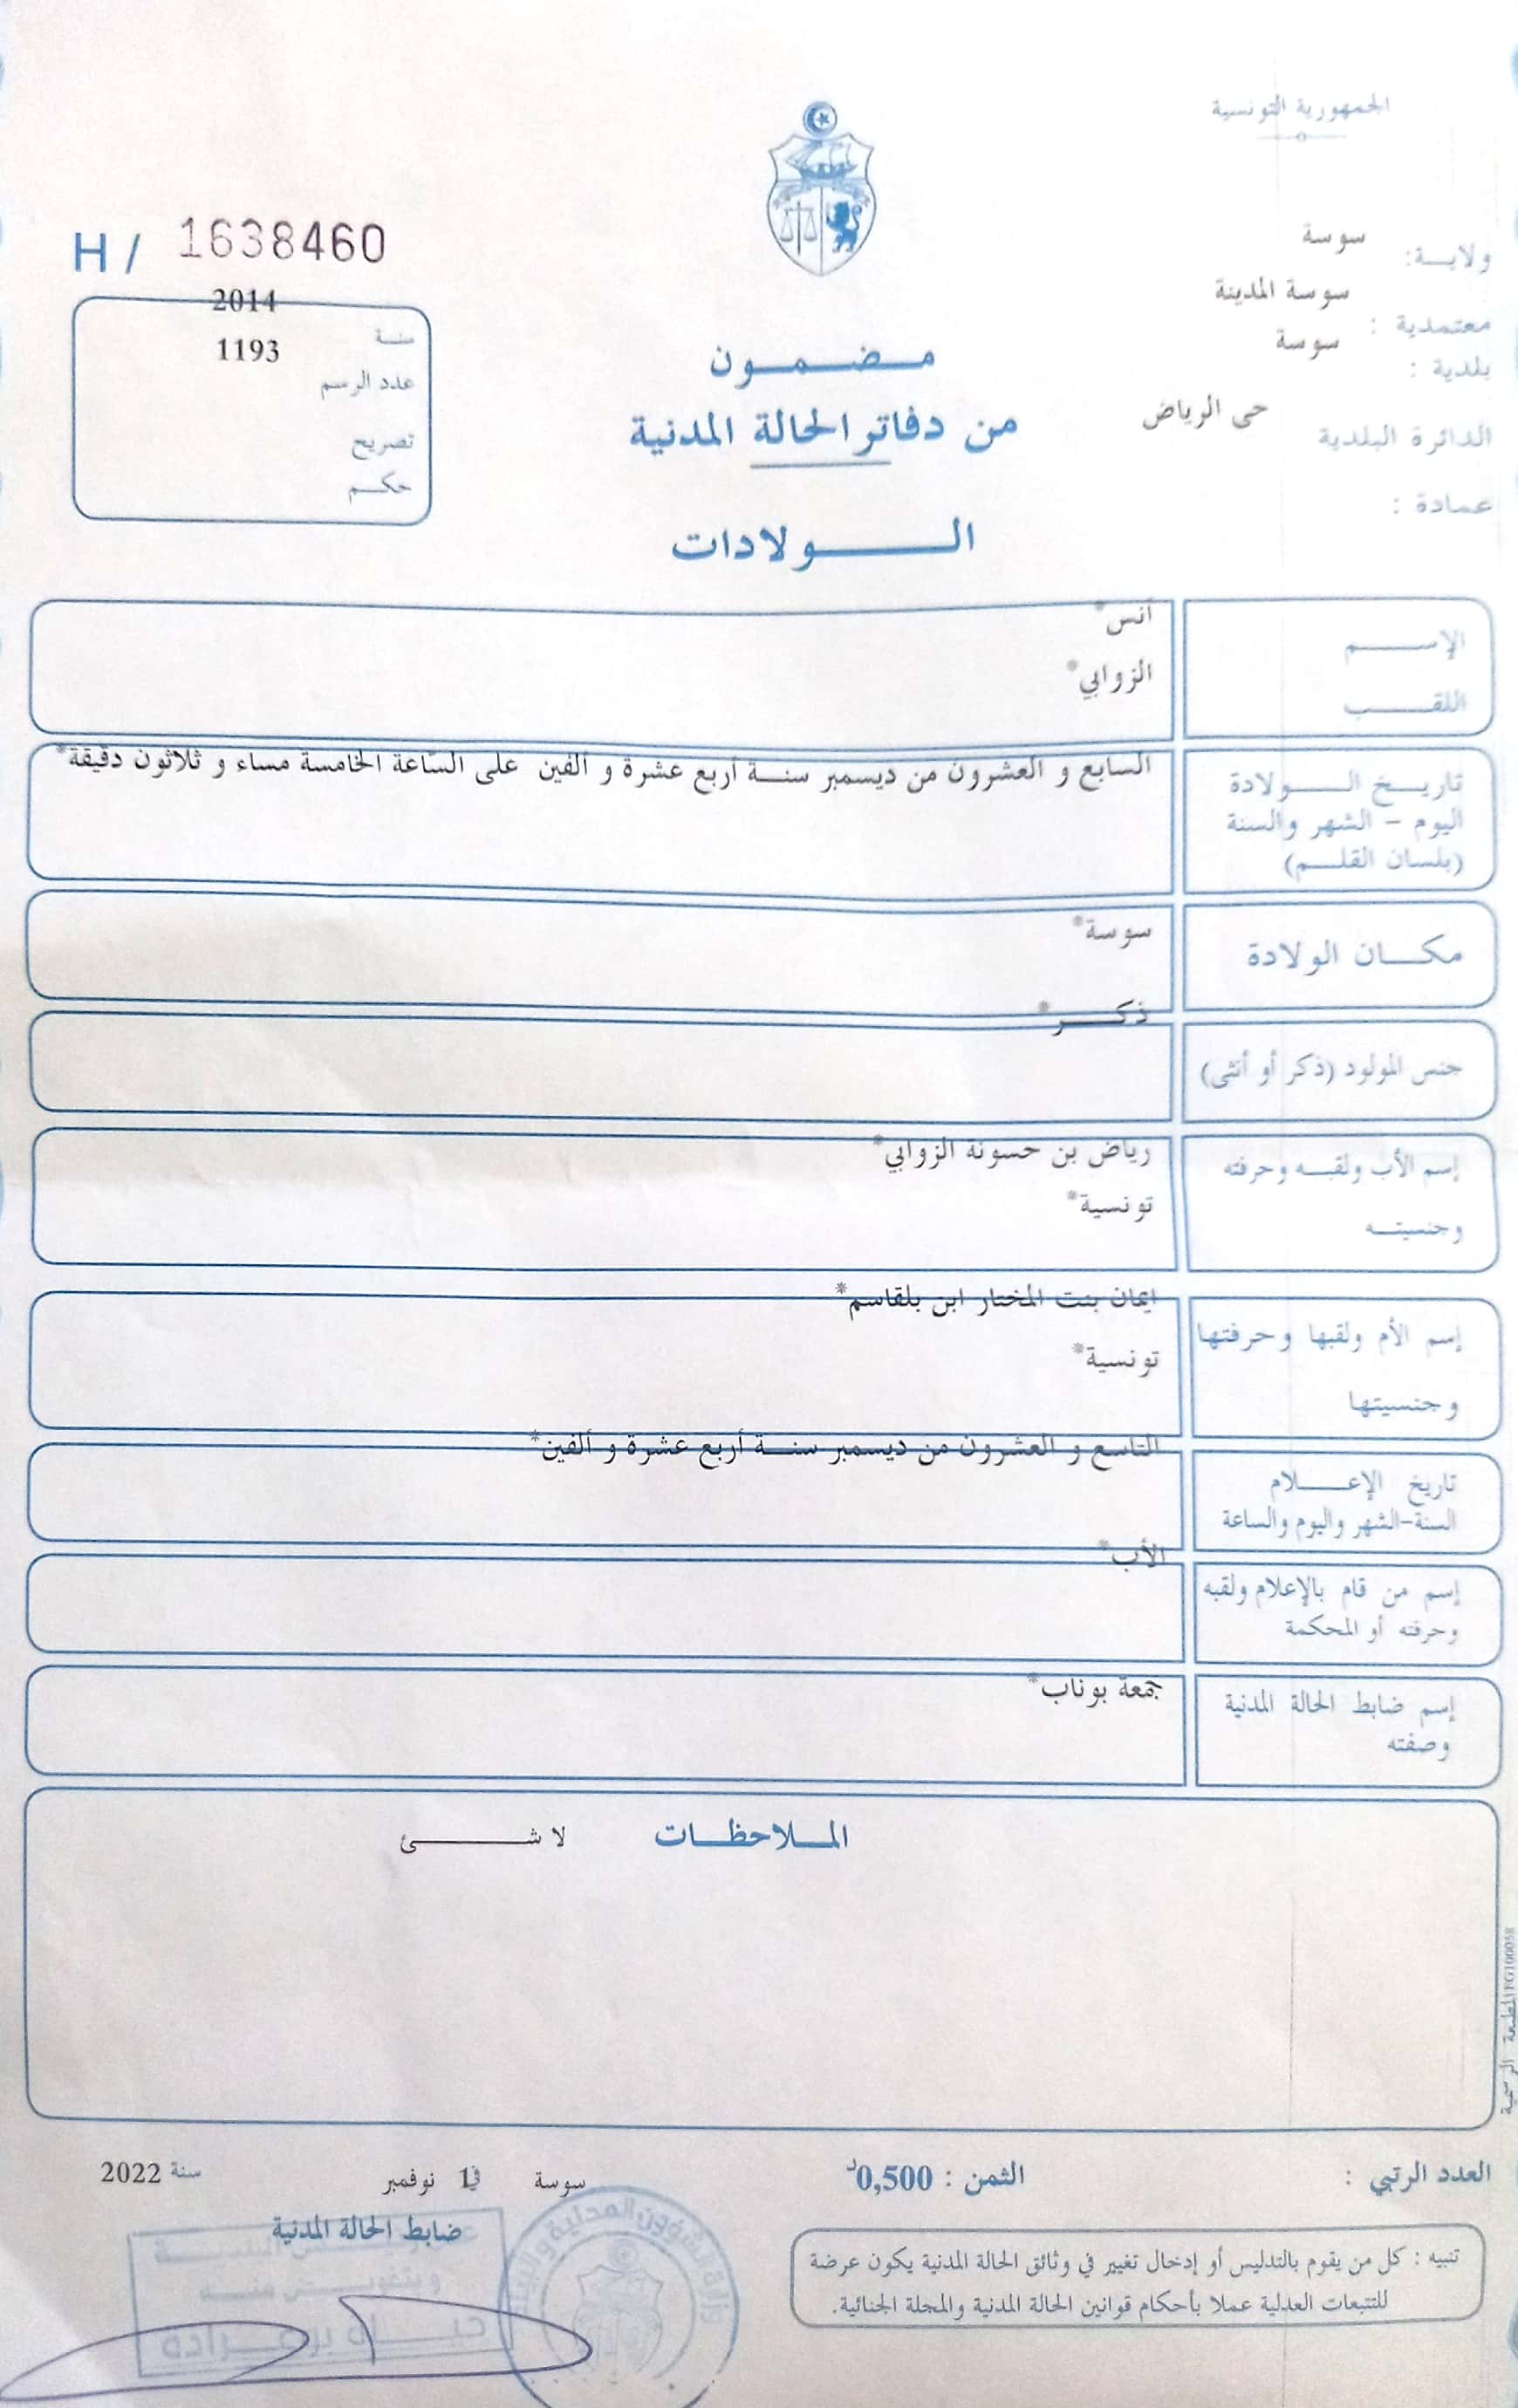 الجمهورية التونسية
ولاية: سوسة
معتمدية : سوسة المدينة
بلدية : سوسة
الدائرة البلدية حى الرياض
عمادة :
H / 1638460
سنة 2014
عدد الرسم 1193
تصريح
حكم
مضمون
من دفاتر الحالة المدنية
الولادات
الإسم أنس*
اللقب الزوابي*
تاريخ الولادة
اليوم - الشهر والسنة
(بلسان القلم)
السابع و العشرون من ديسمبر سنة أربع عشرة و ألفين على السّاعة الخامسة مساء و ثلاثون دقيقة*
مكان الولادة سوسة*
جنس المولود (ذكر أو أنثى) ذكر*
إسم الأب ولقبه وحرفته رياض بن حسونة الزوابي*
وجنسيته تونسية*
إسم الأم ولقبها وحرفتها ايمان بنت المختار ابن بلقاسم*
وجنسيتها تونسية*
تاريخ الإعلام
السنة-الشهر واليوم والساعة
التاسع و العشرون من ديسمبر سنة أربع عشرة و ألفين*
إسم من قام بالإعلام ولقبه
وحرفته أو المحكمة
الأب*
إسم ضابط الحالة المدنية
وصفته
جمعة بوناب*
الملاحظات لا شئ
المطبعة الرسمية FG100058
العدد الرتبي :
الثمن : 0,500د
سوسة في 1 نوفمبر سنة 2022
ضابط الحالة المدنية
تنبيه : كل من يقوم بالتدليس أو إدخال تغيير في وثائق الحالة المدنية يكون عرضة
للتتبعات العدلية عملا بأحكام قوانين الحالة المدنية والمجلة الجنائية.
وزارة الشؤون المحلية والبيئة